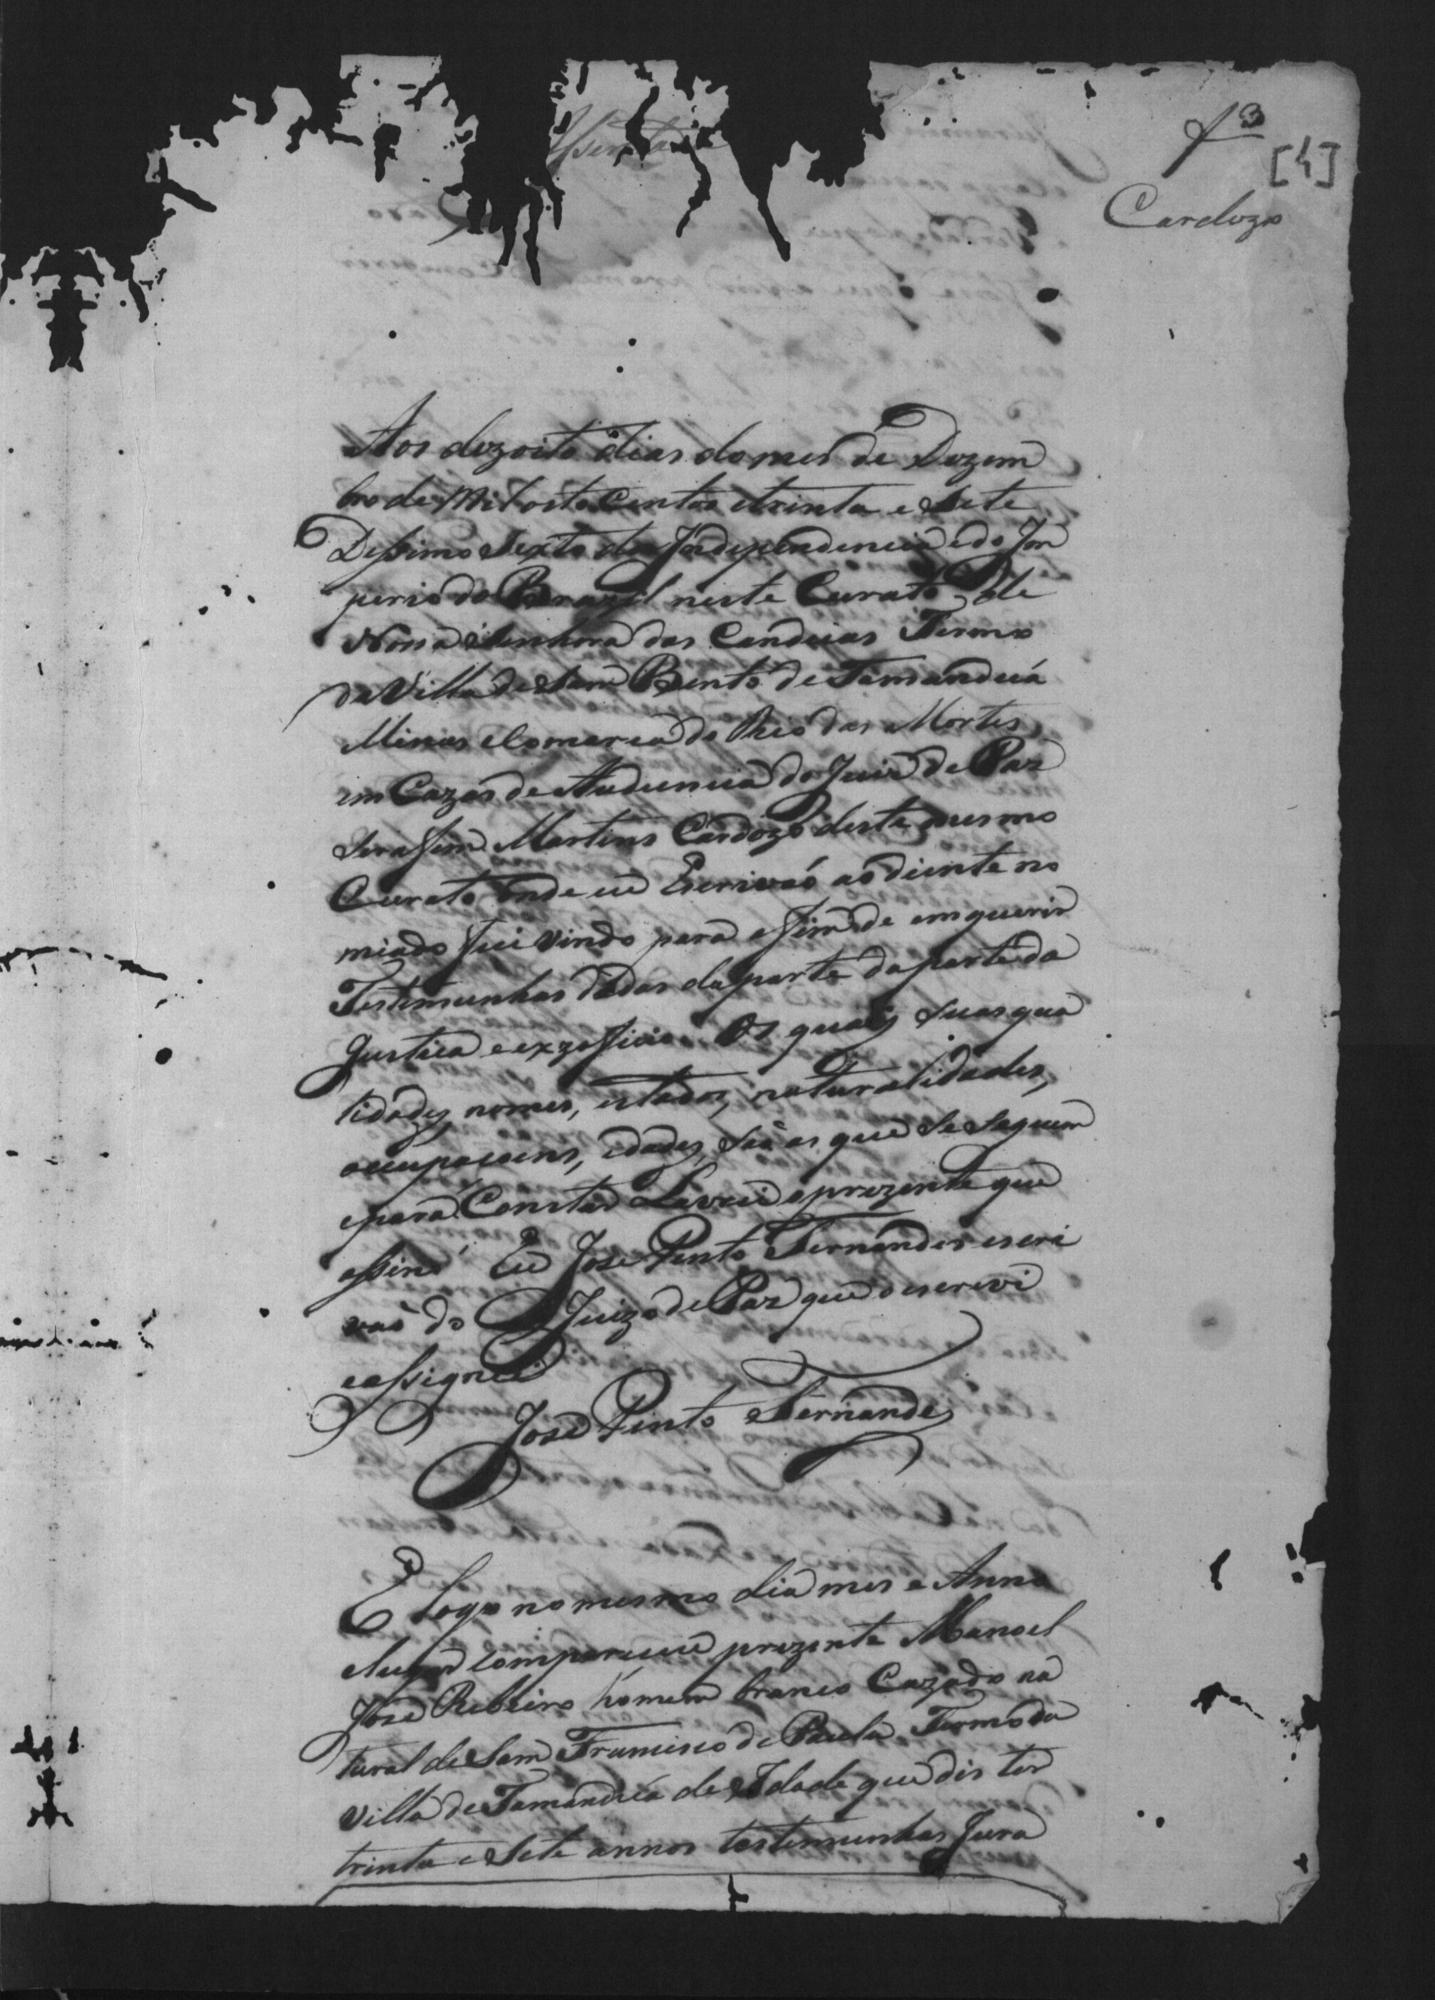 Assentada
f 3
[4]
Cardozo
Aos dezoito dias do mes de Dezem
bro de Mil oito Centos e trinta e Sete
Dessimo Sexto da Independencia e do Im
perio do Brazil neste Curato de
Nossa Senhora das Candeias Termo
da Villa de Sam Bento de Tamanduá
Minas e Comarca do Rio das Mortes,
em Cazas de Audiencia do Juiz de Paz
Serafim Martins Cardozo deste mesmo
Curato onde eu Escrivaõ ao diente no
miado fui vindo para efim de emquerir
Testemunhas dadas da parte da parte da
Justica e exzoficio Os quais Suas qua
lidades nomes, estados, naturalidades,
ocupacoens, idades, saõ as que se seguem
e para Constar Lavrei o prezente que
assino Eu Jose Pinto Fernandes escri
vaõ do Juizo de Paz que o escrevi
e assignei
José Pinto Fernandes
E logo no mesmo dia mes e Anno
e lugar compareceu prezente Manoel
José Ribeiro homem branco Cazado na
tural de Sam Francisco de Paula Termo da
Villa de Tamanduá de Idade que dis ter
trinta e Sete annos testemunhas Jura